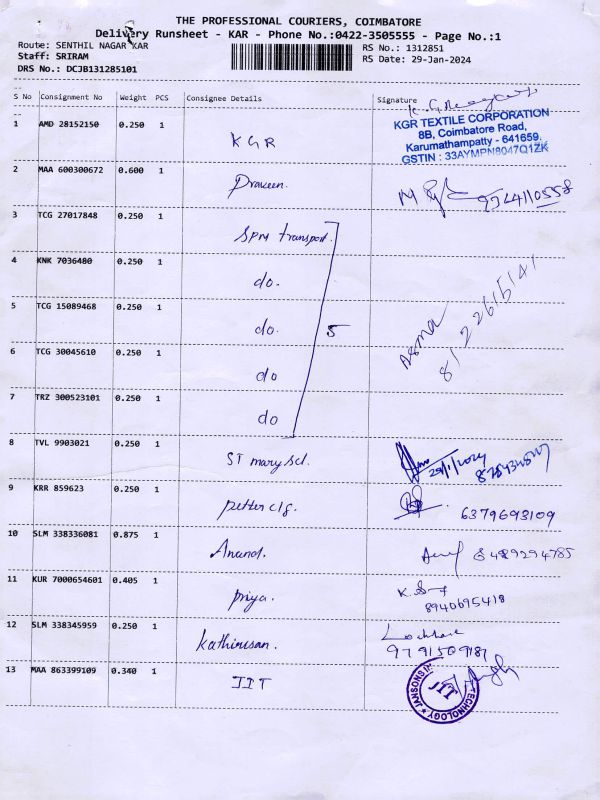 THE PROFESSIONAL COURIERS, COIMBATORE
Delivery Runsheet - KAR - Phone No.:0422-3505555 - Page No.:1
Route: SENTHIL NAGAR KAR
RS No.: 1312851
Staff: SRIRAM
RS Date: 29-Jan-2024
DRS No.: DCJB131285101
S No Consignment No Weight PCS Consignee Details Signature
1 AMD 28152150 0.250 1 KGR
KGR TEXTILE CORPORATION
8B, Coimbatore Road,
Karumathampatty - 641659.
GSTIN : 33AYMPN8047Q1ZK
2 MAA 600300672 0.600 1 Praveen.
3 TCG 27017848 0.250 1 SPM transport.
4 KNK 7036480 0.250 1 do.
5 TCG 15089468 0.250 1 do. 5
6 TCG 30045610 0.250 1 do
7 TRZ 300523101 0.250 1 do
Asma
8122615141
8 TVL 9903021 0.250 1 ST mary scl. 29/1/2024
9 KRR 859623 0.250 1 petter clg. 6379693109
10 SLM 338336081 0.875 1 Anand. 8489294785
11 KUR 7000654601 0.405 1 priya. 8940695418
12 SLM 338345959 0.250 1 kathiresan. 9791509187
13 MAA 863399109 0.340 1 JIT
JANSONS
JIT
TECHNOLOGY